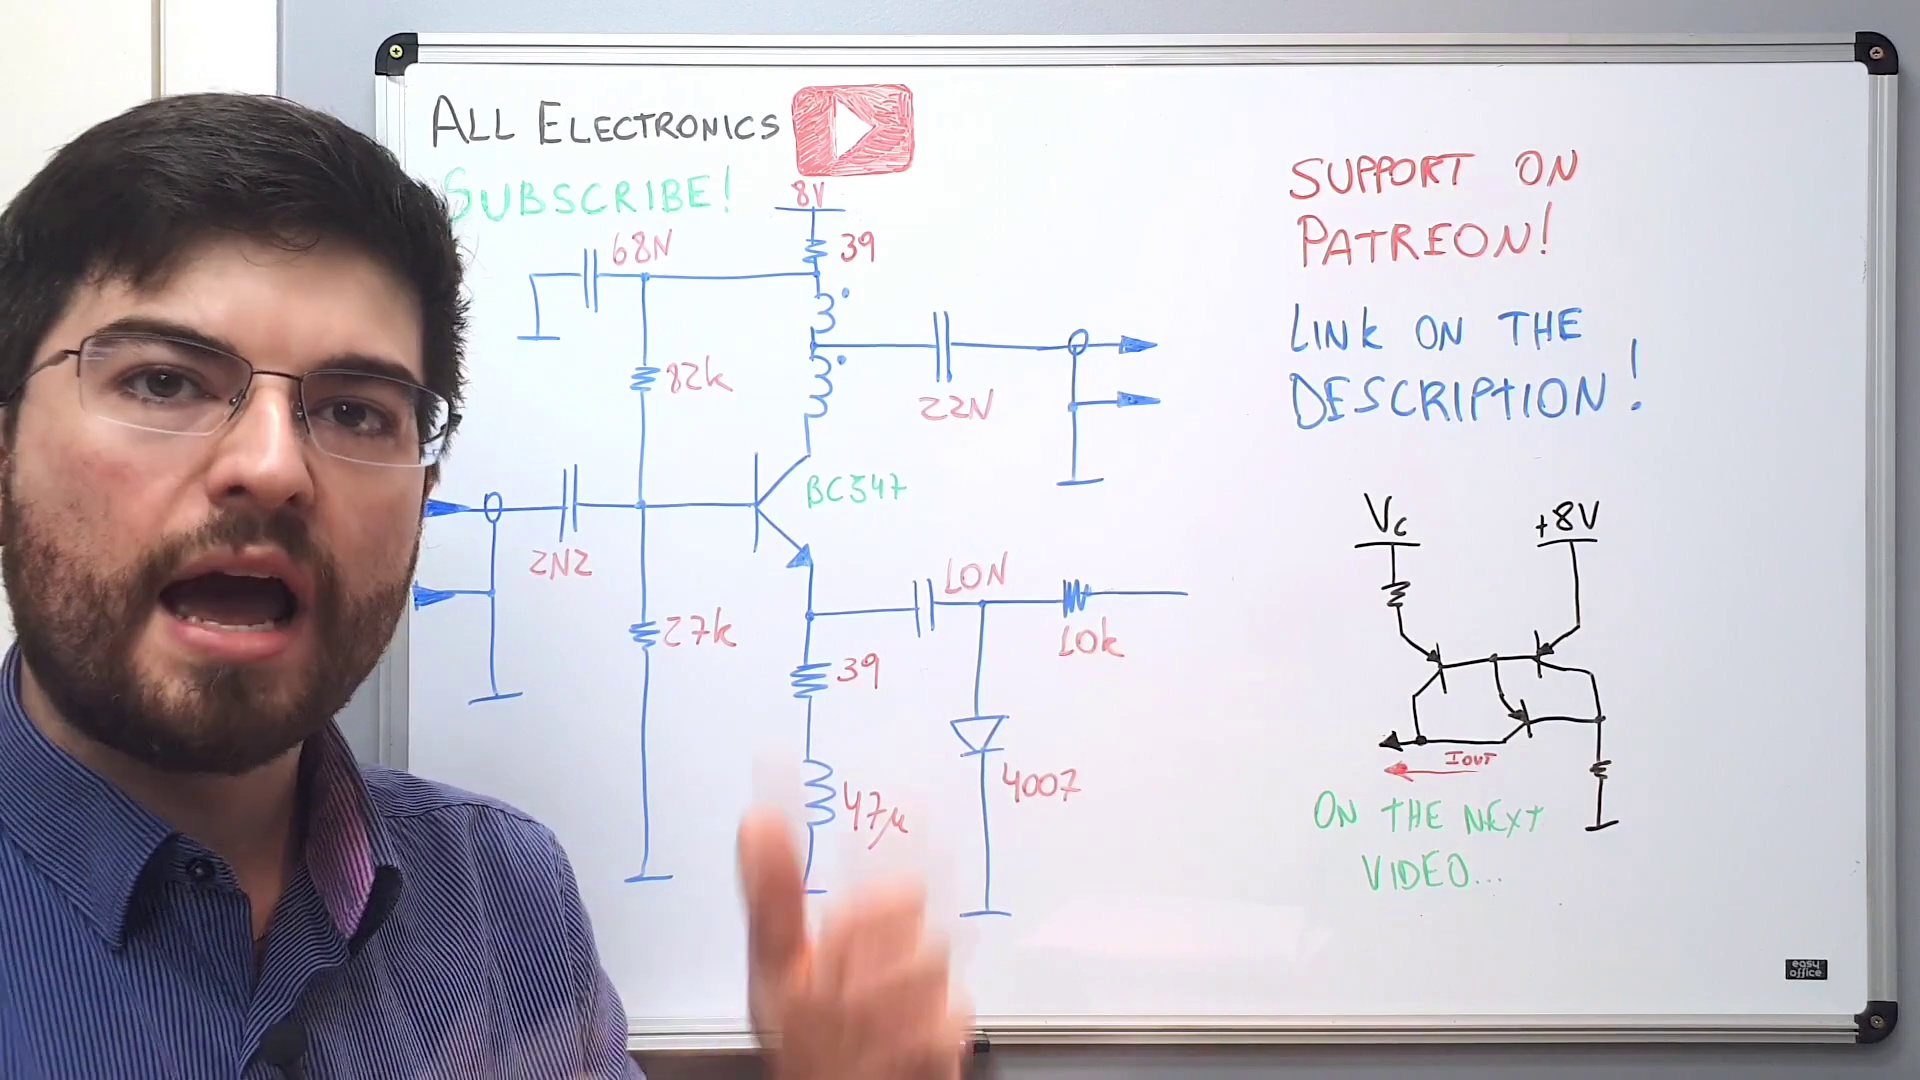 ALL ELECTRONICS
SUBSCRIBE!
8V
39
68N
82k
22N
BC547
2N2
27k
10N
10k
39
47µ
4007
SUPPORT ON
PATREON!
LINK ON THE
DESCRIPTION!
Vc
+8V
IOUT
ON THE NEXT
VIDEO...
easy
office